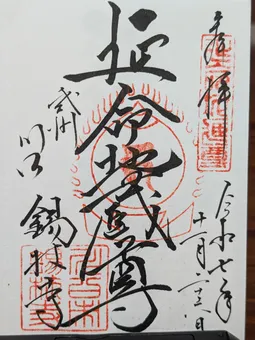 奉拝
令和七年
十一月二十八日
延命地蔵尊
武州
川口
錫杖寺